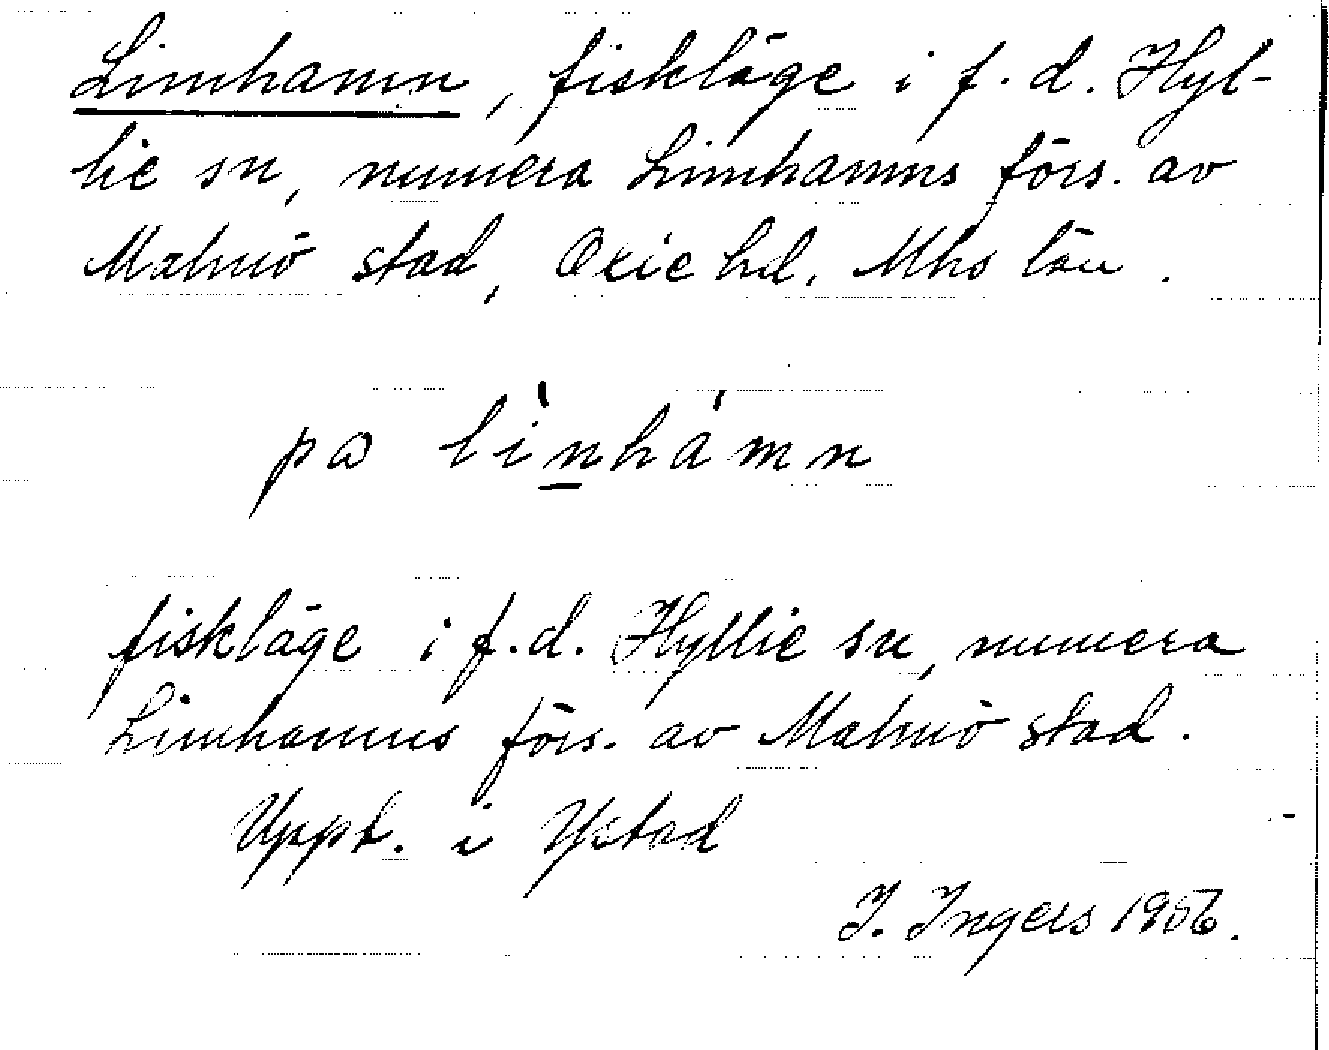 Limhamn, fiskläge i f. d. Hyl-
lie sn, numera Limhamns förs. av
Malmö stad, Oxie hd, Mhs län.
pa lìnhámn
fiskläge i f.d. Hyllie sn, numera
Limhamns förs. av Malmö stad.
Uppt. i Ystad
I. Ingers 1956.